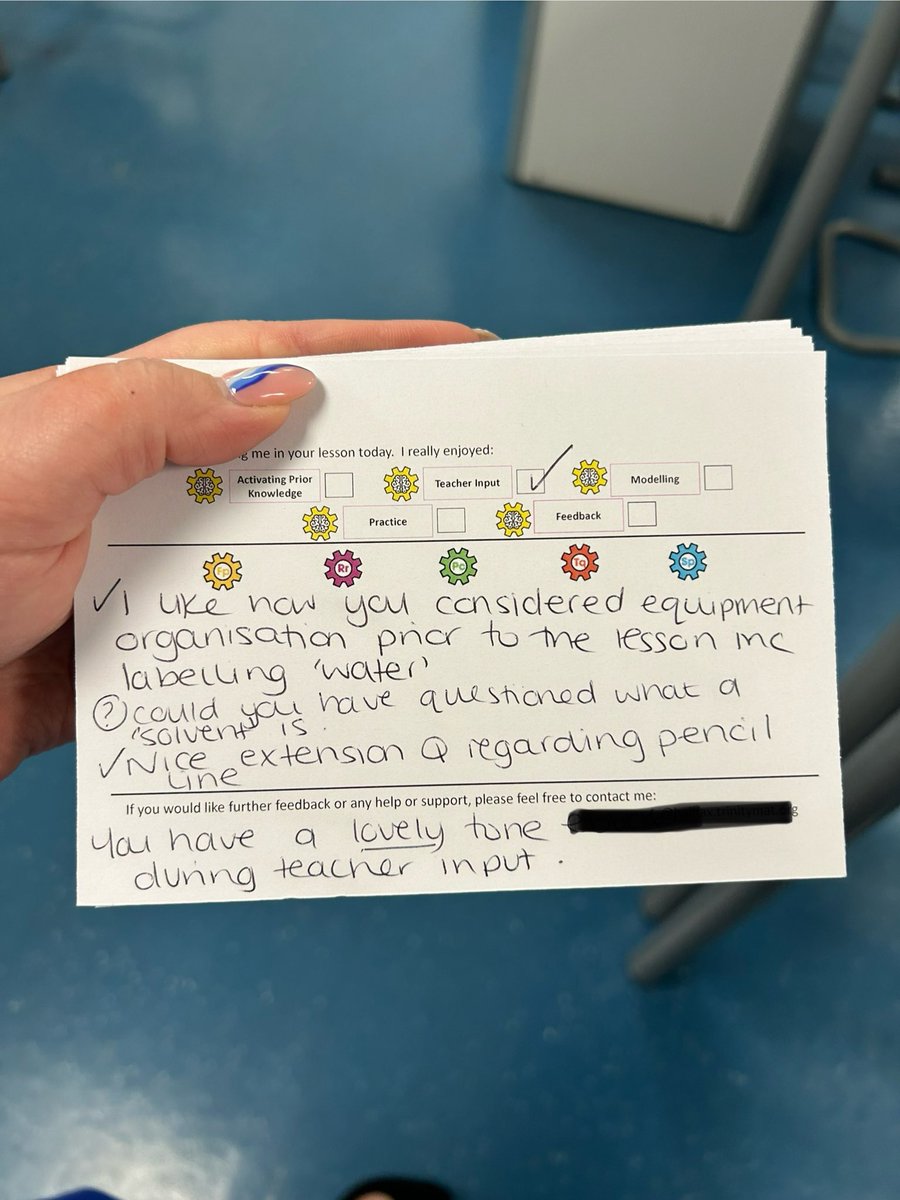 g me in your lesson today. I really enjoyed:
Activating Prior Knowledge
Teacher Input
Modelling
Practice
Feedback
Fp Rr Pc Tq Sp
✓ I like how you considered equipment
organisation prior to the lesson inc
labelling 'water'
? could you have questioned what a
'solvent' is.
✓ Nice extension Q regarding pencil
line
If you would like further feedback or any help or support, please feel free to contact me:
You have a lovely tone
during teacher input.